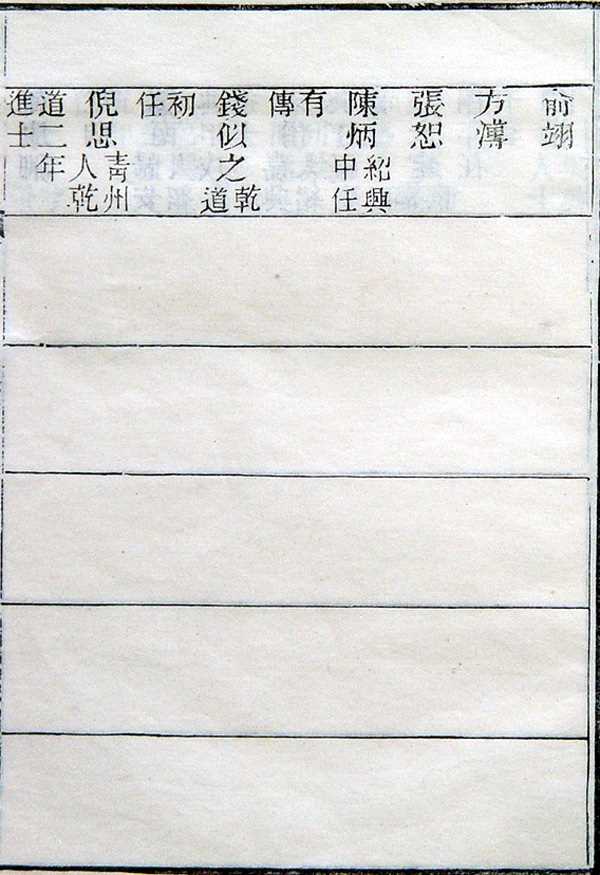 俞翊
方溥
張恕
陳炳紹興中任
有傳
錢似之乾道
初任
倪思青州人乾
道二年進士